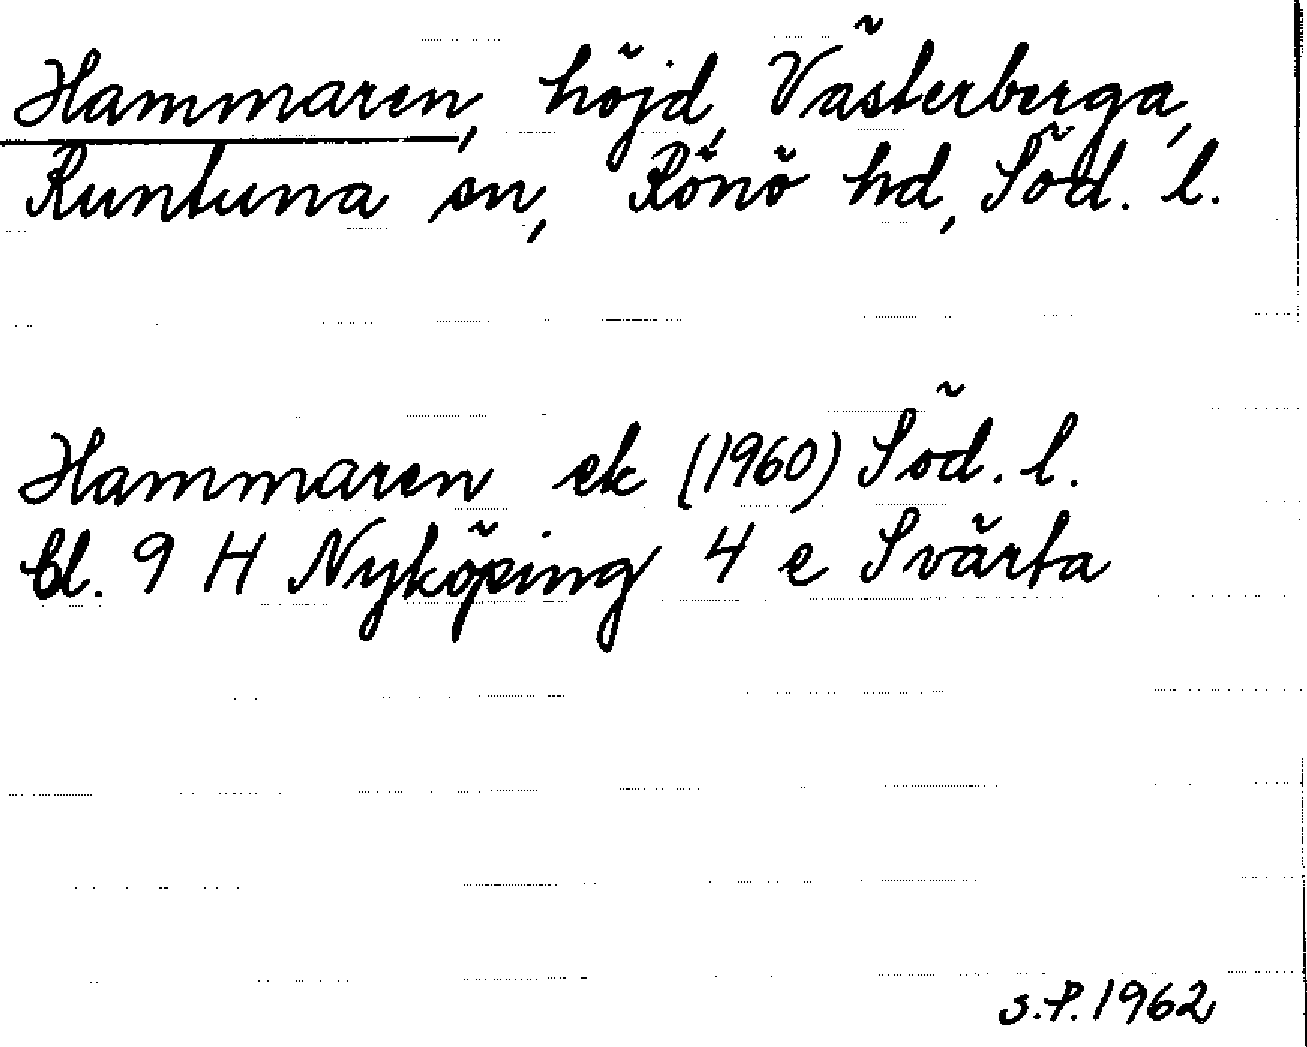 Hammaren, höjd, Västerberga,
Runtuna sn, Rönö hd, Söd. l.
Hammaren ek (1960) Söd. l.
bl. 9 H Nyköping 4 e Svärta
S.P. 1962